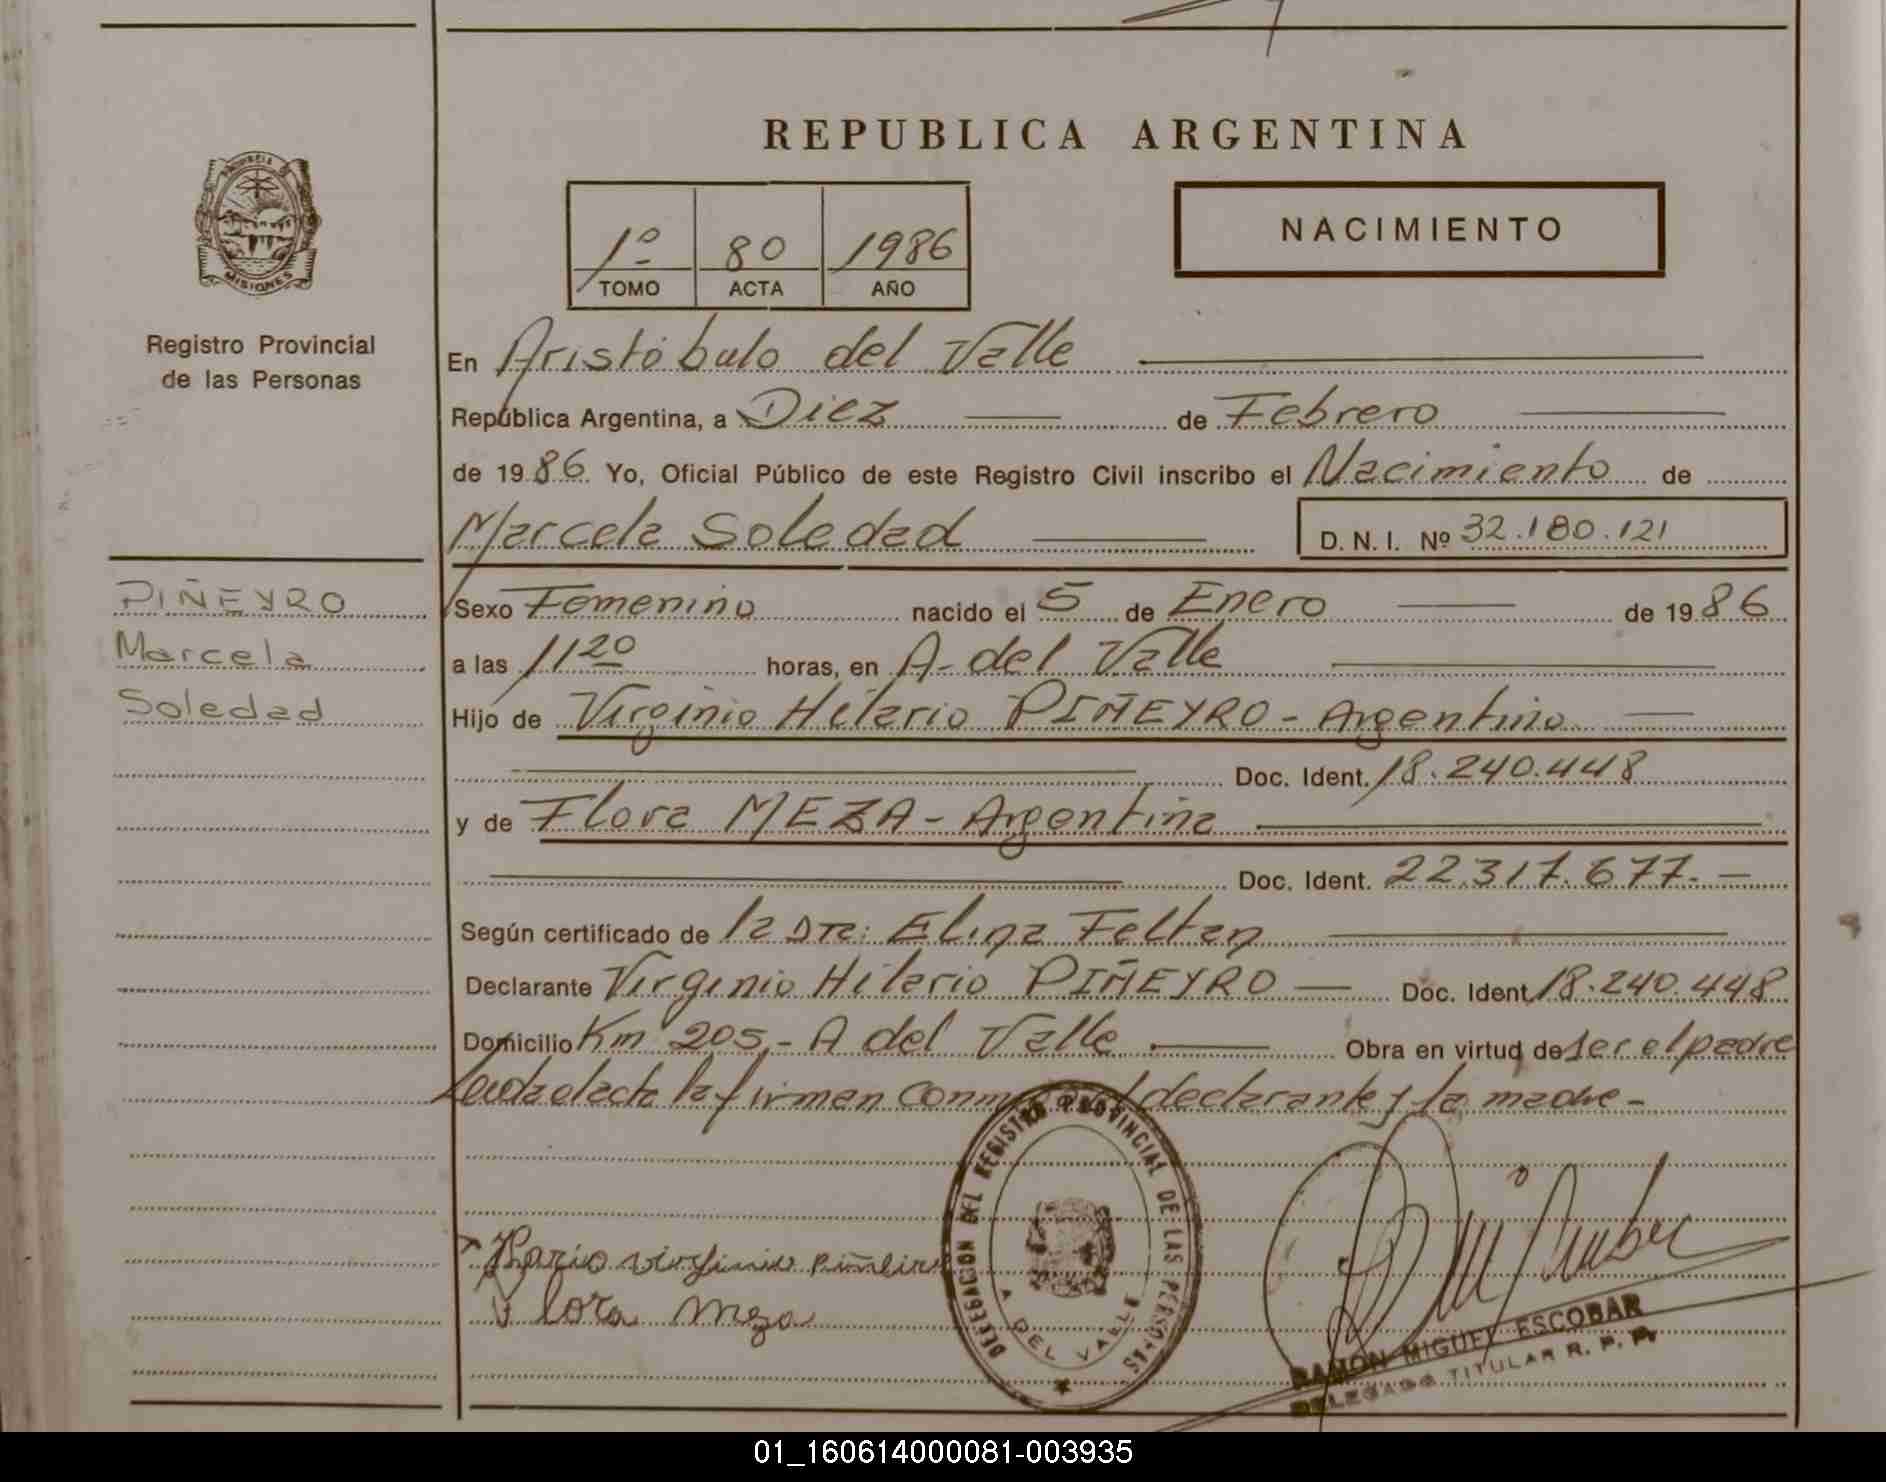 REPUBLICA ARGENTINA
PROVINCIA DE
MISIONES
Registro Provincial
de las Personas
1º 80 1986
TOMO ACTA AÑO
NACIMIENTO
En Aristóbulo del Valle
República Argentina, a Diez de Febrero
de 1986 Yo, Oficial Público de este Registro Civil inscribo el Nacimiento de
Marcela Soledad D. N. I. Nº 32.180.121
PIÑEYRO
Marcela
Soledad
Sexo Femenino nacido el 5 de Enero de 1986
a las 11 20 horas, en A. del Valle
Hijo de Virginio Hilario PIÑEYRO - Argentino
Doc. Ident. 18.240.448
y de Flora MEZA - Argentina
Doc. Ident. 22.317.677.-
Según certificado de la Dra: Elina Feltan
Declarante Virginio Hilario PIÑEYRO Doc. Ident. 18.240.448
Domicilio Km 205 - A del Valle Obra en virtud de ser el padre
Leída el acta la firman declarante y la madre -
DELEGACION DEL REGISTRO PROVINCIAL DE LAS PERSONAS
A DEL VALLE
virginio Piñeiro
Flora Meza
RAMON MIGUEL ESCOBAR
DELEGADO TITULAR R. P. P.
01_160614000081-003935